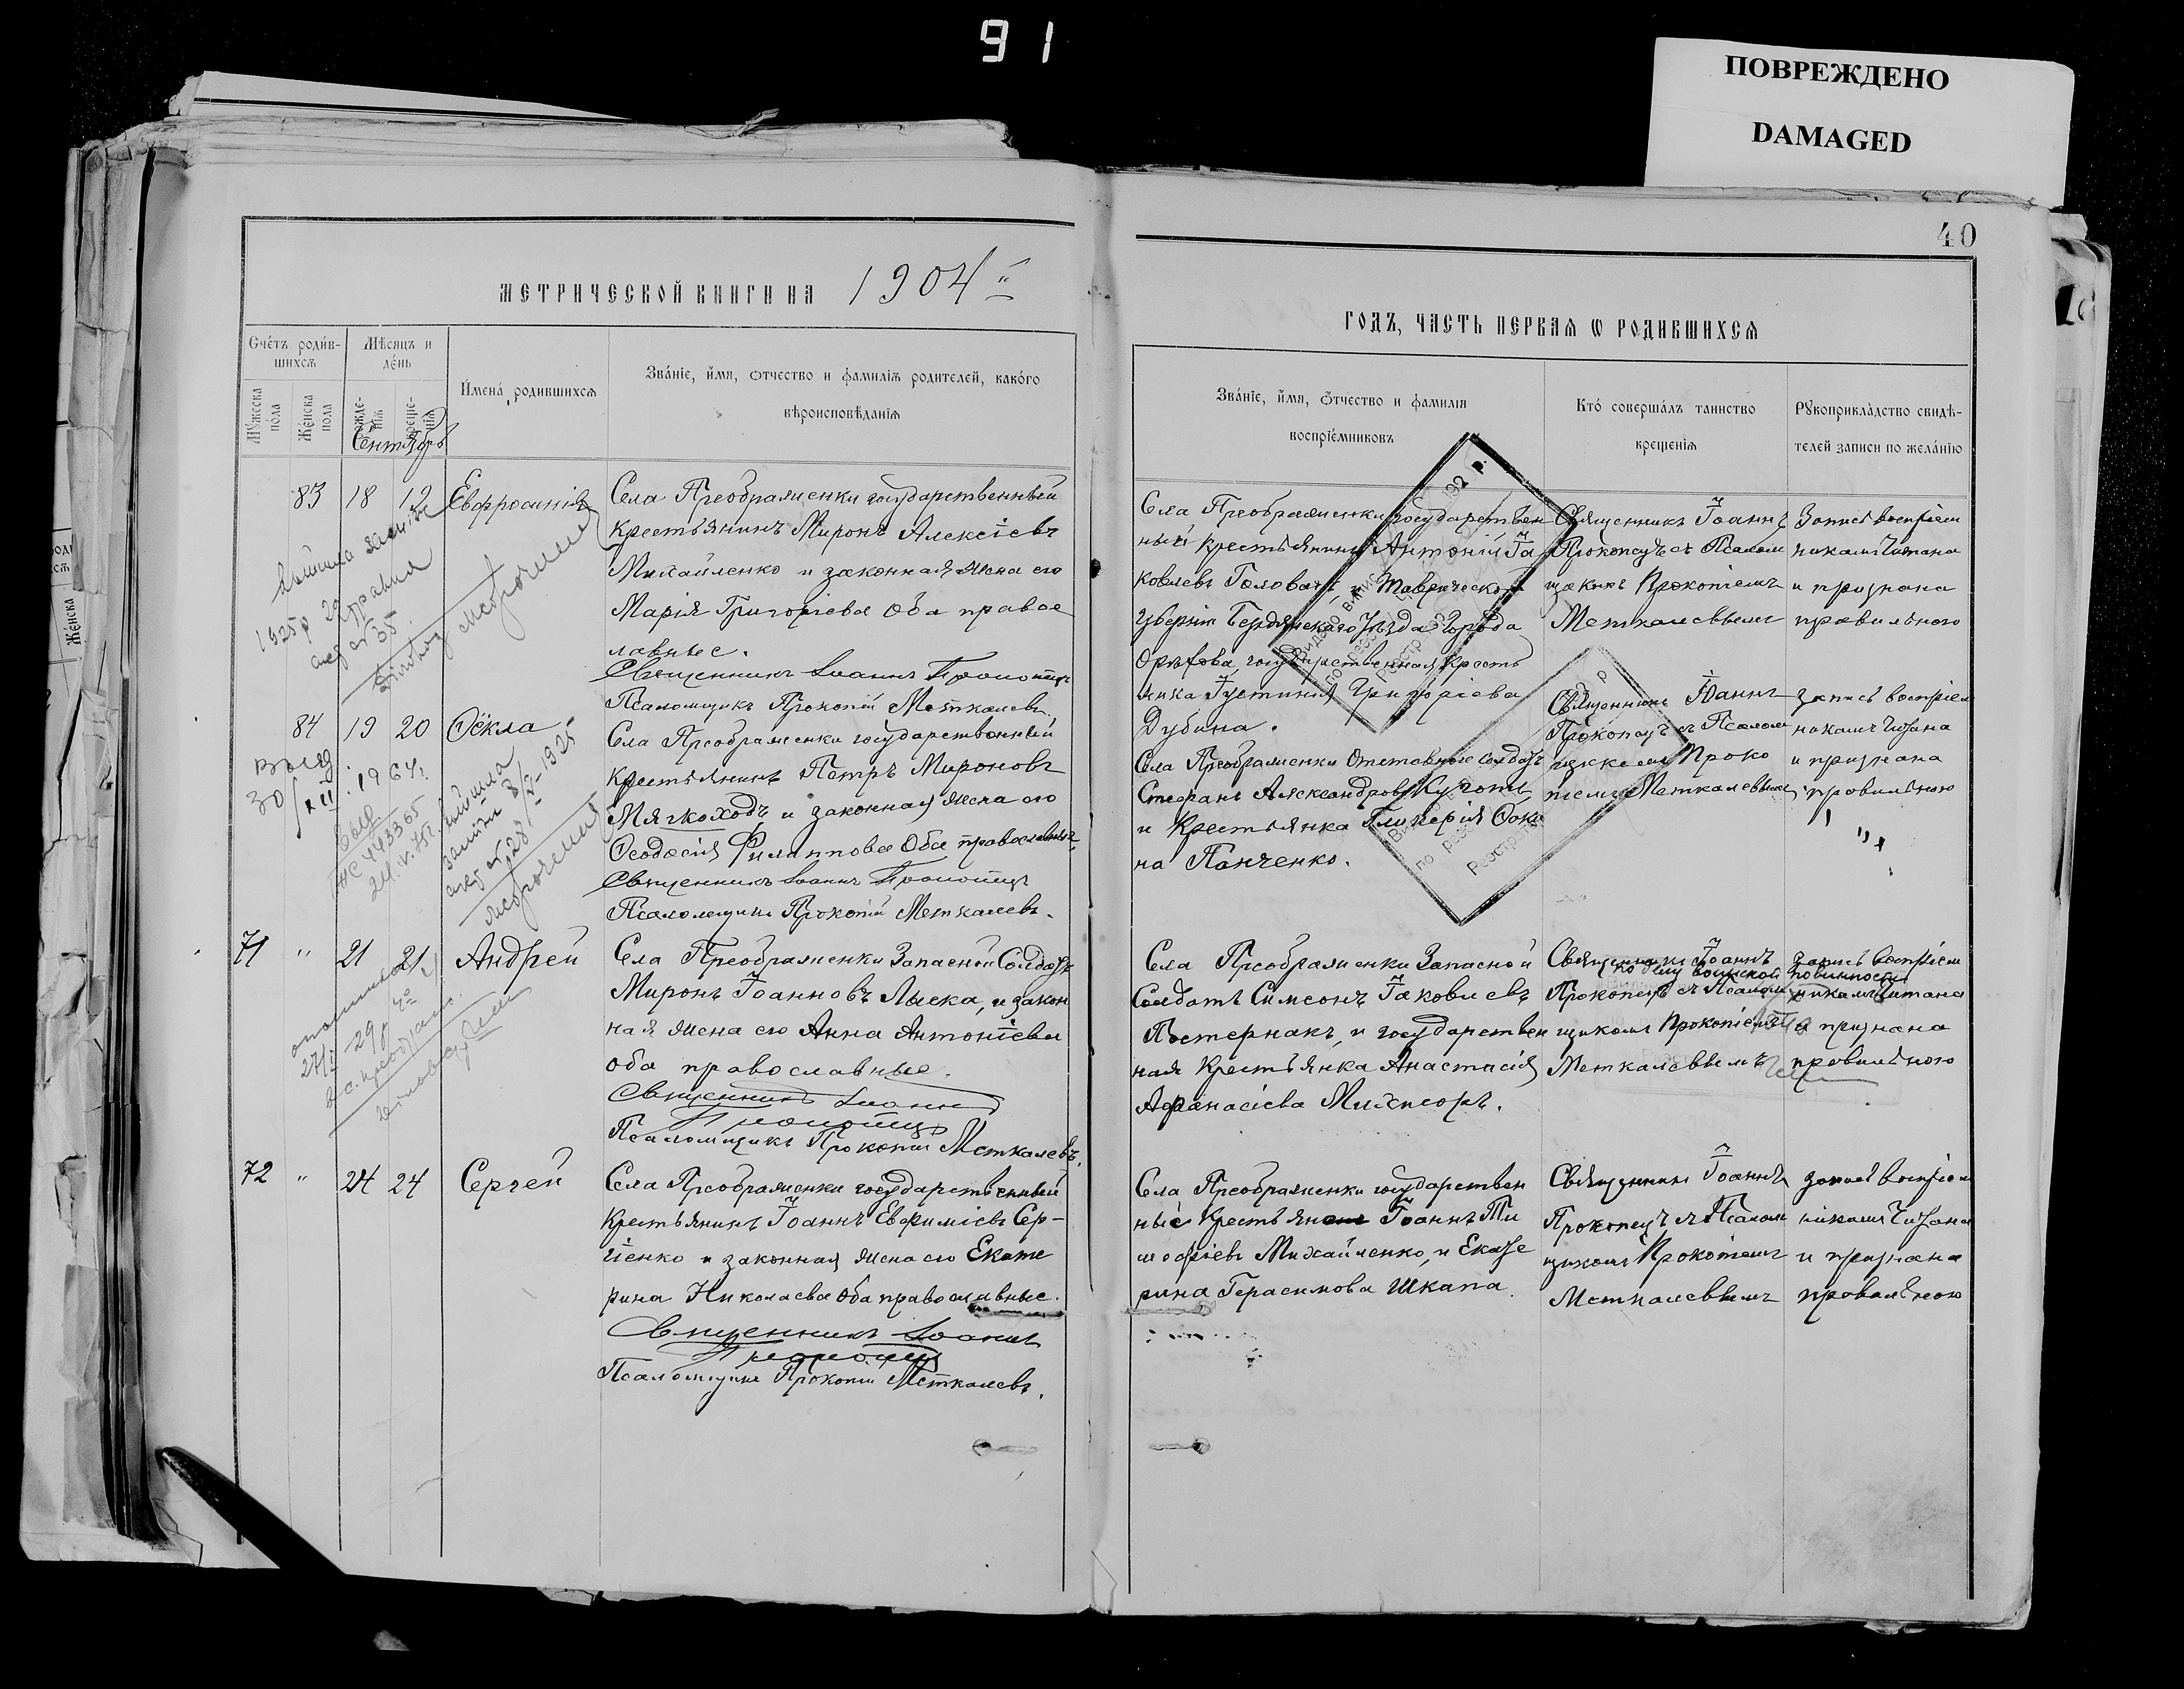 91
ПОВРЕЖДЕНО
DAMAGED
40
МЕТРИЧЕСКОЙ КНИГИ НА 1904й
ГОДЪ, ЧАСТЬ ПЕРВАЯ Ѡ РОДИВШИХСЯ
Счетъ родив-
шихся
Мѣсяцъ и
день
Имена родившихся
Званіе, имя, отчество и фамилія родителей, какого
вѣроисповѣданія
Мужеска пола
Женска пола
Сентябрь
Званіе, имя, отчество и фамилія
воспріемниковъ
Кто совершалъ таинство
крещенія
Рукоприкладство свидѣ-
телей записи по желанію
83 18 19 Евфросинія
Села Преображенки государственный
крестьянинъ Миронъ Алексіевъ
Михайленко и законная жена его
Марія Григоріева Оба право
лавные.
Священникъ Іоаннъ Прокопецъ
Псаломщикъ Прокопій Меткалевъ.
Села Преображенки государствен
ный крестьянинъ Антоній Іа
ковлевъ Головать, и Таврической
губерніи Бердянскаго Уѣзда Города
Орѣхова, государственная кресть
янка Іустинія Григоріева
Дубина.
Священникъ Іоаннъ
Прокопецъ съ Псалом
щикомъ Прокопіемъ
Меткалевымъ
Запись воспріем
никамъ читана
и признана
правильною
84 19 20 Ѳекла
Села Преображенки государственный
крестьянинъ Петръ Мироновъ
Мягкоходъ и законная жена его
Ѳеодосія Филиппова Оба православные,
Священникъ Іоаннъ Прокопецъ
Псаломщикъ Прокопій Меткалевъ.
Села Преображенки Отставной солдатъ
Стефанъ Александровъ
и Крестьянка Гликерія Ѳоки
на Панченко.
Священникъ Іоаннъ
Прокопецъ съ Псалом
щикомъ Проко
піемъ Меткалевымъ
запись воспріем
никамъ читана
и признана
правильною
71 " 21 21 Андрей
Села Преображенки Запасной Солдатъ
Миронъ Іоанновъ Лыска, и закон
ная жена его Анна Антоніева
оба православные.
Священникъ Іоаннъ
Прокопецъ
Псаломщикъ Прокопій Меткалевъ.
Села Преображенки Запасной
Солдатъ Симеонъ Іаковлевъ
Пастернакъ, и государствен
ная Крестьянка Анастасія
Афанасіева
Священникъ Іоаннъ
Прокопецъ съ Псалом
щикомъ Прокопіемъ
Меткалевымъ
запись воспріем
никамъ читана
и признана
правильною
72 " 24 24 Сергей
Села Преображенки государственный
Крестьянинъ Іоаннъ Евфиміевъ Сер-
гіенко и законная жена его Екате
рина Николаева Оба православные.
Священникъ Іоаннъ
Прокопецъ
Псаломщикъ Прокопій Меткалевъ.
Села Преображенки государствен
ные Крестьяне Іоаннъ Ти
мофіевъ Михайленко, и Екате
рина Герасимова Шкапа.
Священникъ Іоаннъ
Прокопецъ съ Псалом
щикомъ Прокопіемъ
Меткалевымъ
запись воспріем
никамъ читана
и признана
правильною